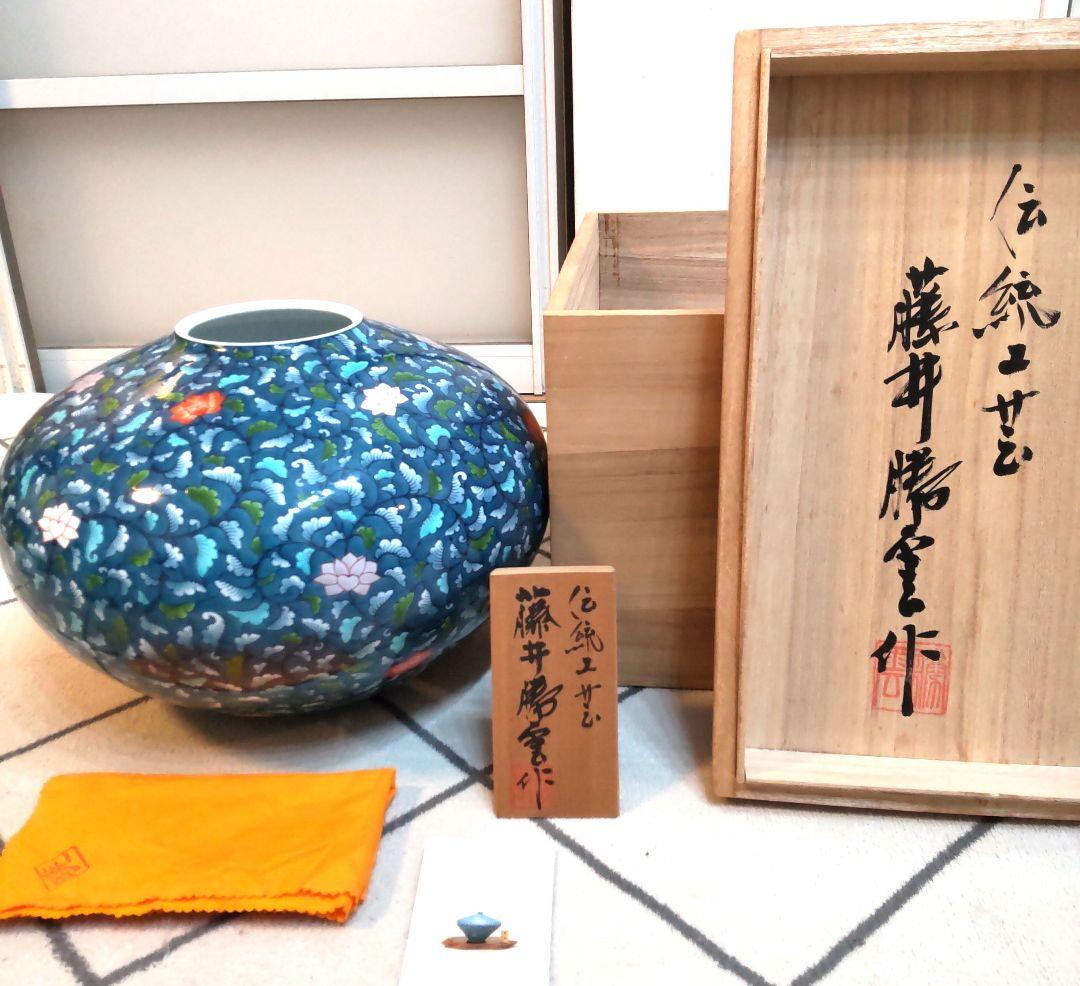 伝統工芸
藤井勝雲作
伝統工芸
藤井勝雲作